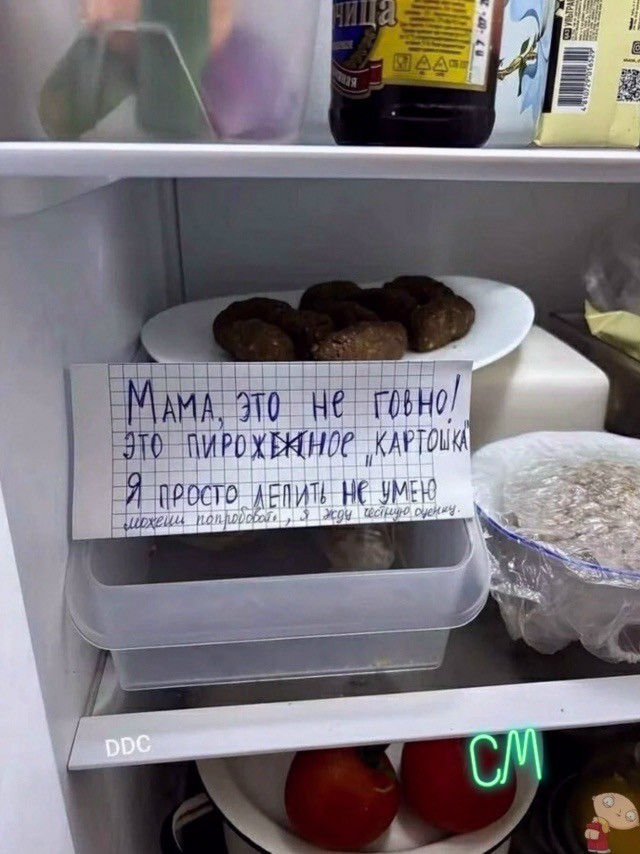 чица
МАМА, ЭТО НЕ ГОВНО!
ЭТО ПИРОЖЕЖНОЕ „КАРТОШКА"
Я ПРОСТО ЛЕПИТЬ НЕ УМЕЮ
можешь попробовать, я жду честную оценку.
DDC
СМ